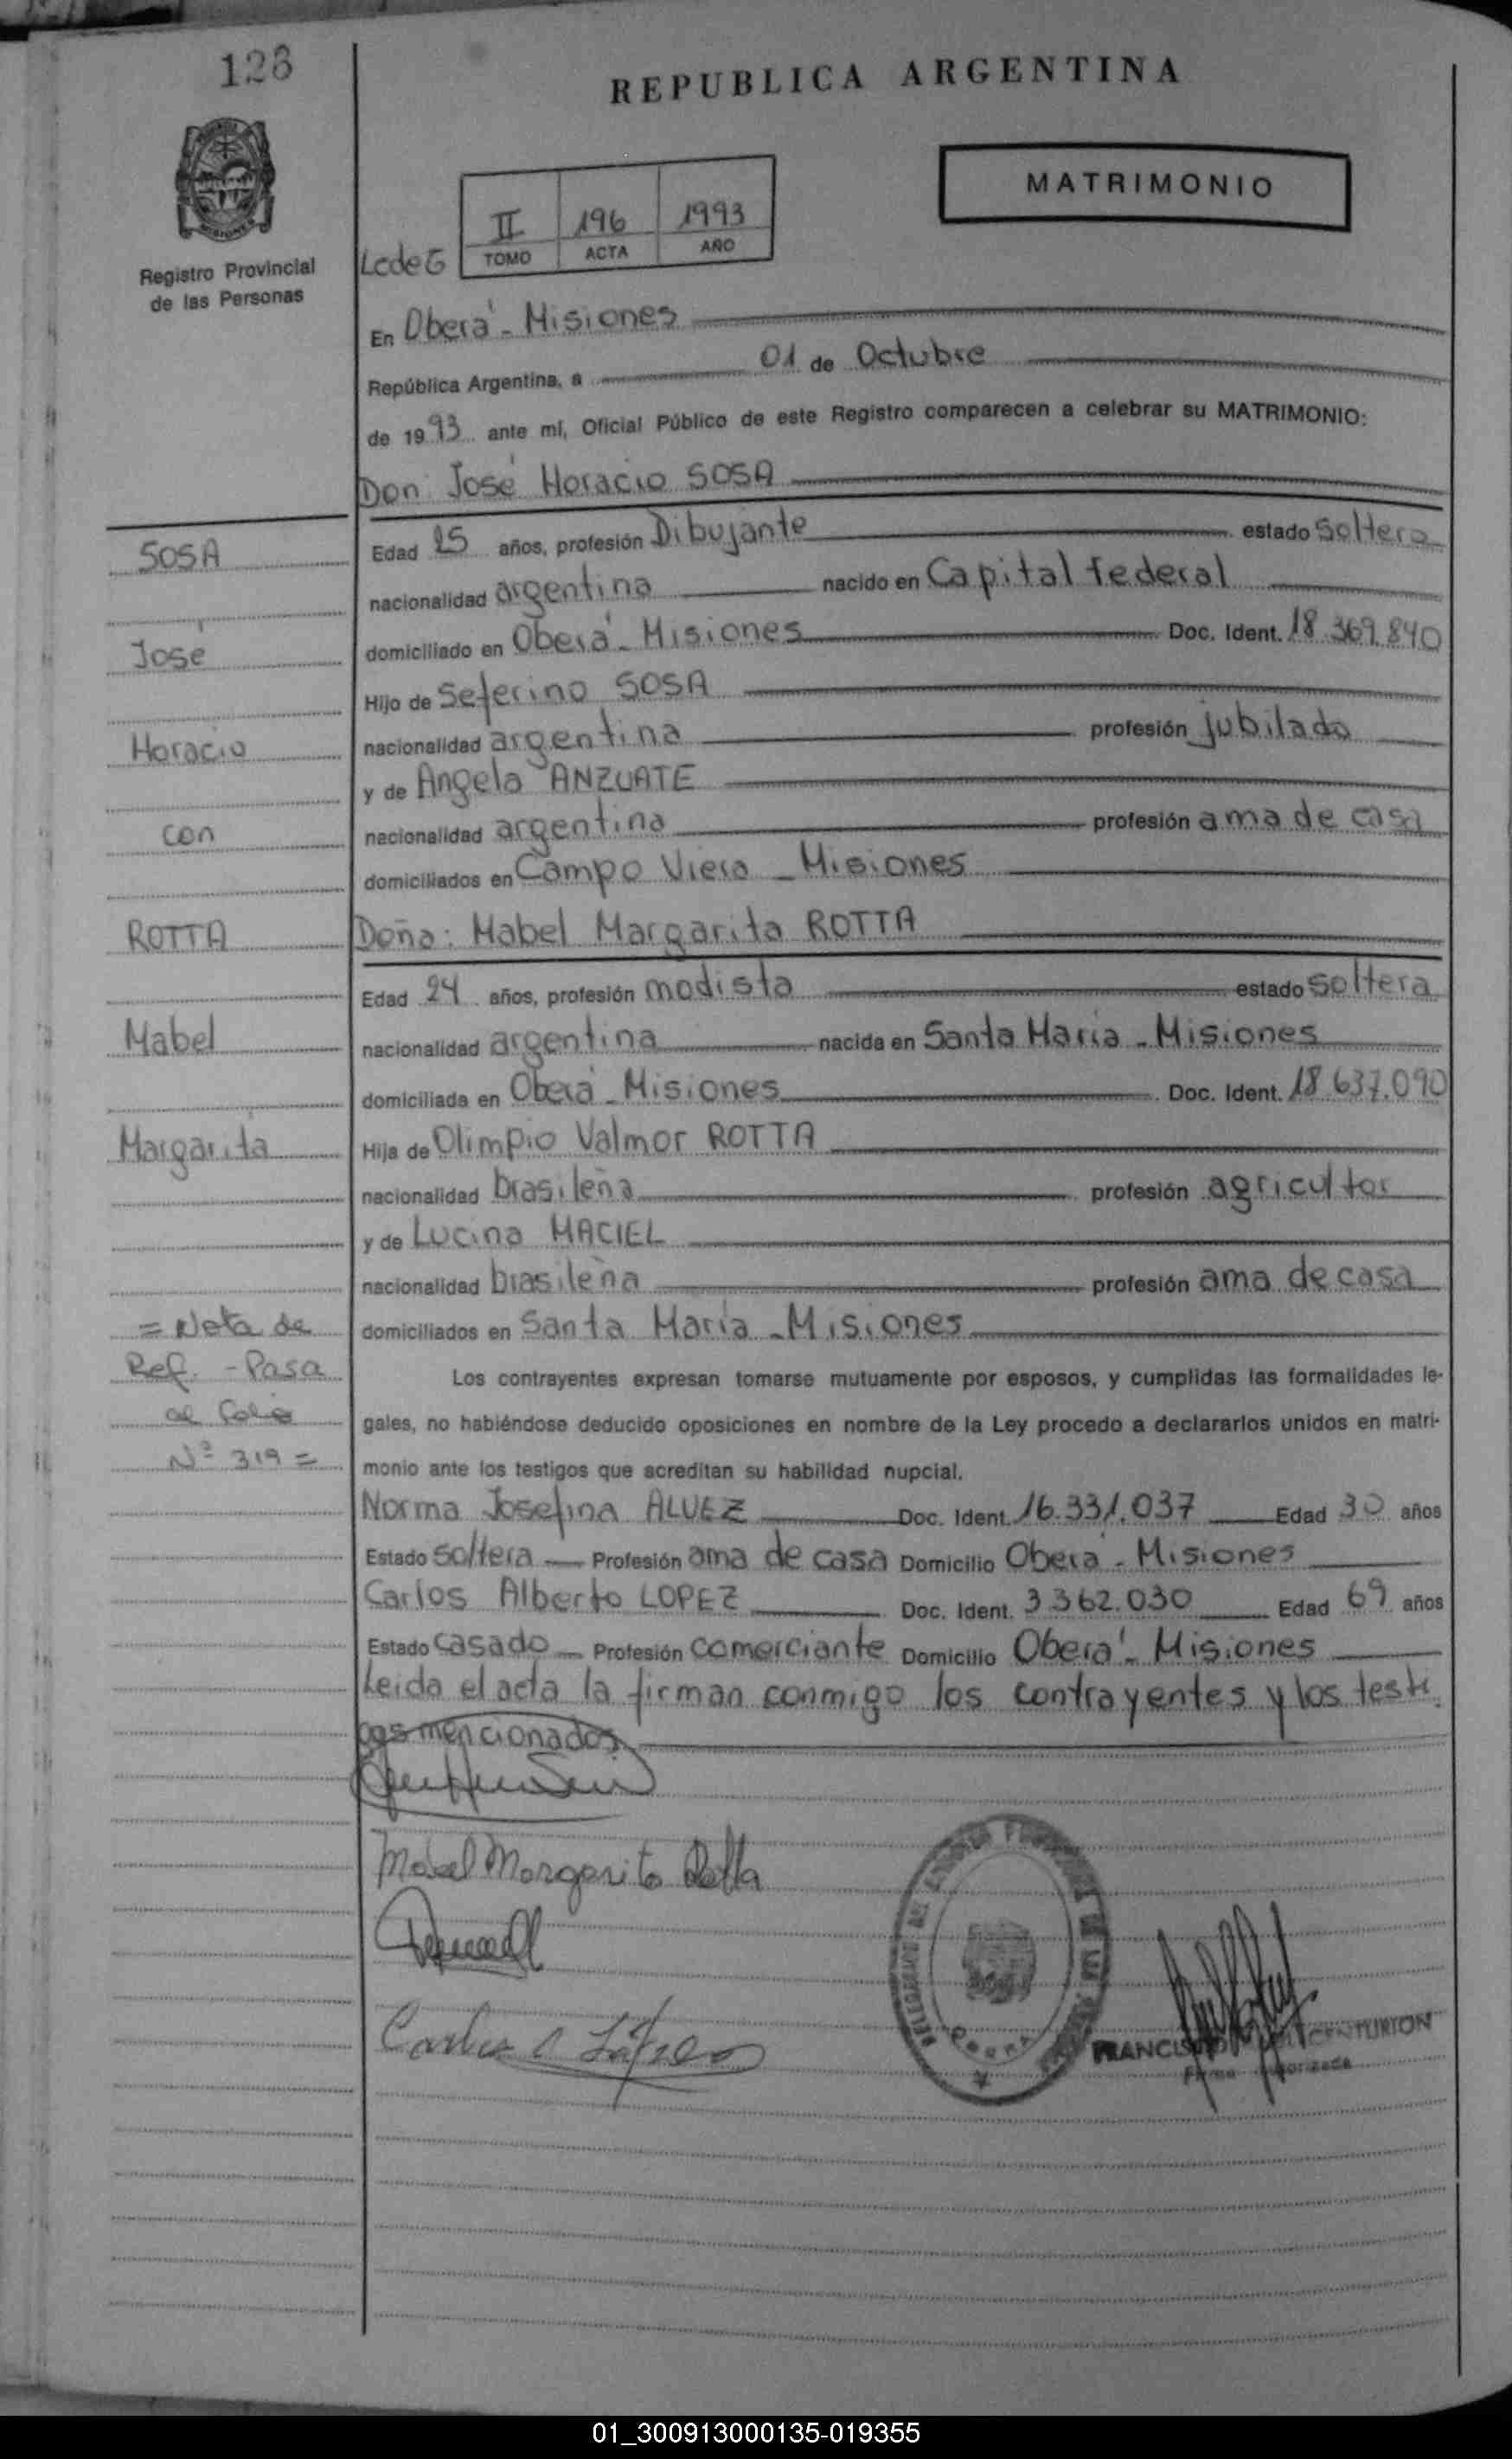 126
REPUBLICA ARGENTINA
MATRIMONIO
II 196 1993
TOMO ACTA AÑO
Registro Provincial
de las Personas
En Oberá - Misiones
República Argentina, a 01 de Octubre
de 1993 ante mí, Oficial Público de este Registro comparecen a celebrar su MATRIMONIO:
Don: José Horacio SOSA
SOSA
Edad 25 años, profesión Dibujante estado soltero
nacionalidad argentina nacido en Capital Federal
José
domiciliado en Oberá - Misiones Doc. Ident. 18.369.840
Hijo de Seferino SOSA
Horacio
nacionalidad argentina profesión jubilado
y de Angela ANZUATE
con
nacionalidad argentina profesión ama de casa
domiciliados en Campo Viera - Misiones
ROTTA
Doña: Mabel Margarita ROTTA
Edad 24 años, profesión modista estado soltera
Mabel
nacionalidad argentina nacida en Santa María - Misiones
domiciliada en Oberá - Misiones Doc. Ident. 18.637.090
Margarita
Hija de Olimpio Valmor ROTTA
nacionalidad brasileña profesión agricultor
y de Lucina MACIEL
nacionalidad brasileña profesión ama de casa
= Nota de
domiciliados en Santa María - Misiones
Ref. - Pasa
al folio
Nº 319 =
Los contrayentes expresan tomarse mutuamente por esposos, y cumplidas las formalidades le-
gales, no habiéndose deducido oposiciones en nombre de la Ley procedo a declararlos unidos en matri-
monio ante los testigos que acreditan su habilidad nupcial.
Norma Josefina ALVEZ Doc. Ident. 16.331.037 Edad 30 años
Estado soltera Profesión ama de casa Domicilio Oberá - Misiones
Carlos Alberto LOPEZ Doc. Ident. 3.362.030 Edad 69 años
Estado casado Profesión comerciante Domicilio Oberá - Misiones
Leída el acta la firman conmigo los contrayentes y los testi
gos mencionados.
Mabel Margarita Rotta
FRANCISCO CENTURION
Firma Autorizada
01_300913000135-019355